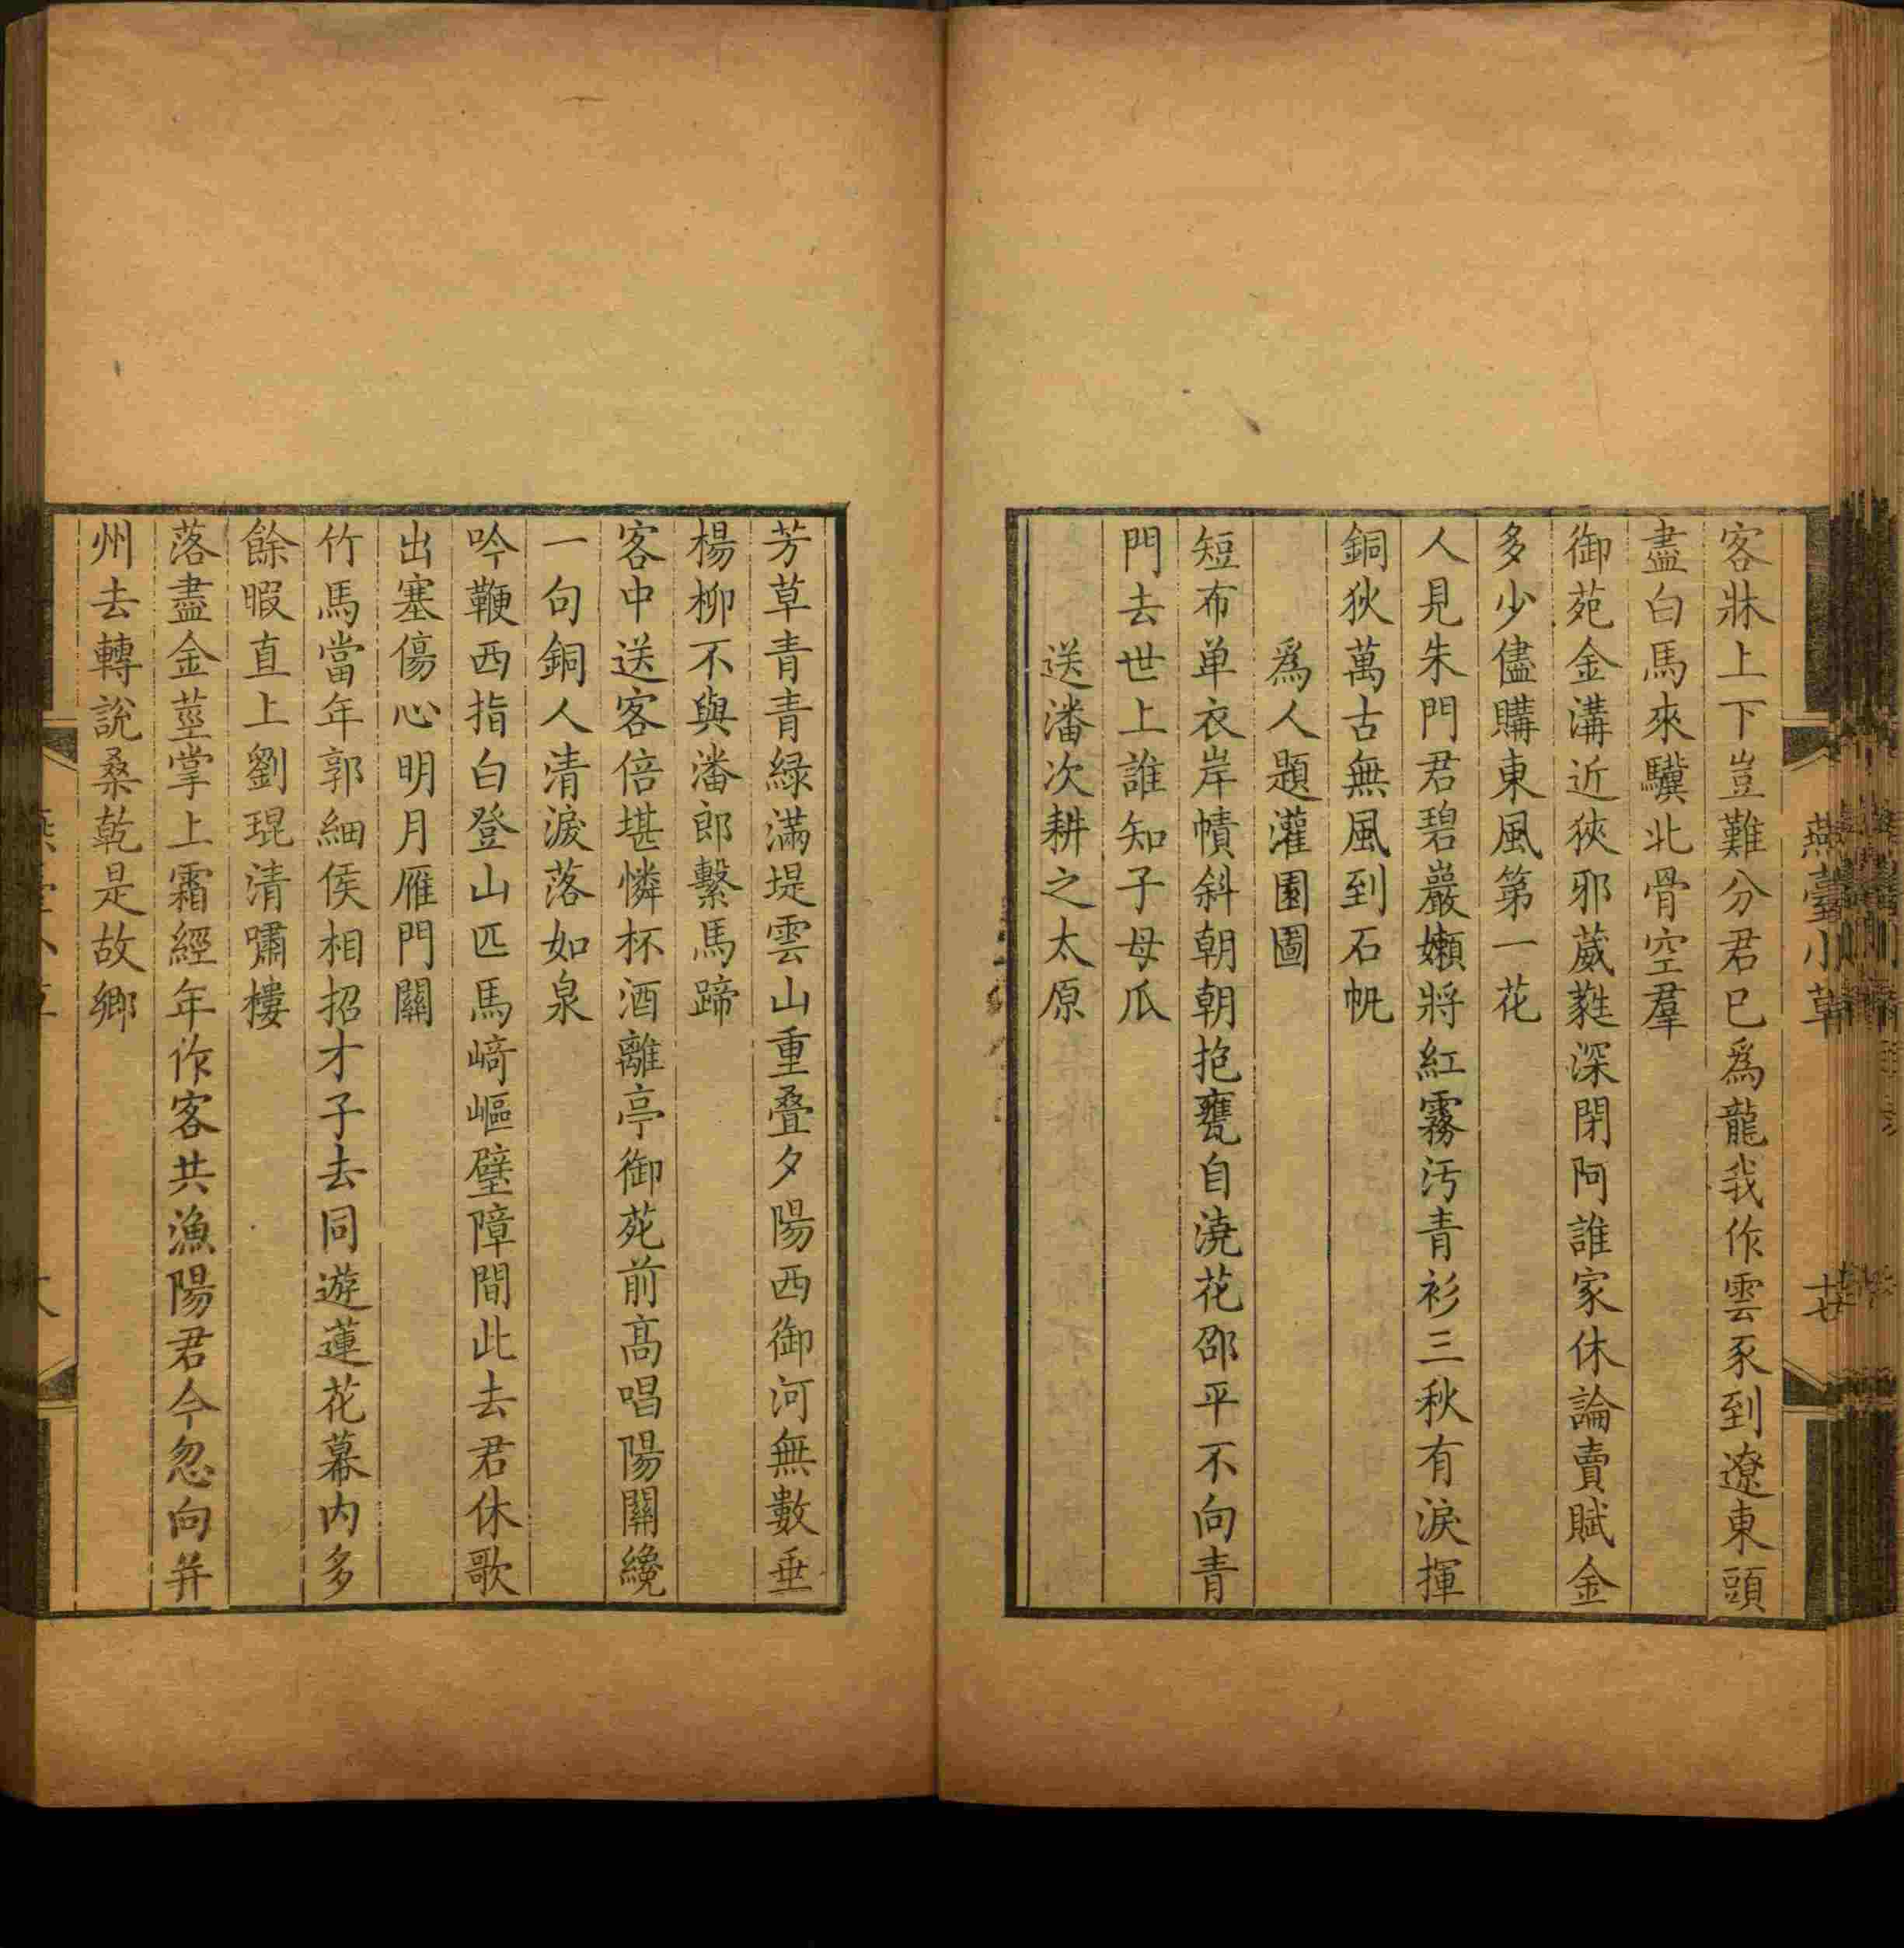 客牀上下豈難分君已爲龍我作雲豕到遼東頭
盡白馬來驥北骨空羣
御苑金溝近狹邪葳蕤深閉阿誰家休論賣賦金
多少儘購東風第一花
人見朱門君碧巖嬾將紅霧汚青衫三秋有淚揮
銅狄萬古無風到石帆
爲人題灌園圖
短布单衣岸幘斜朝朝抱甕自澆花邵平不向青
門去世上誰知子母瓜
送潘次耕之太原
芳草青青緑滿堤雲山重叠夕陽西御河無數垂
楊柳不與潘郎繫馬蹄
客中送客倍堪憐杯酒離亭御苑前高唱陽關纔
一句銅人清淚落如泉
吟鞭西指白登山匹馬崎嶇壁障間此去君休歌
出塞傷心明月雁門關
竹馬當年郭細侯相招才子去同遊蓮花幕内多
餘暇直上劉琨清嘯樓
落盡金莖掌上霜經年作客共漁陽君今忽向并
州去轉說桑乾是故鄉
燕臺小草